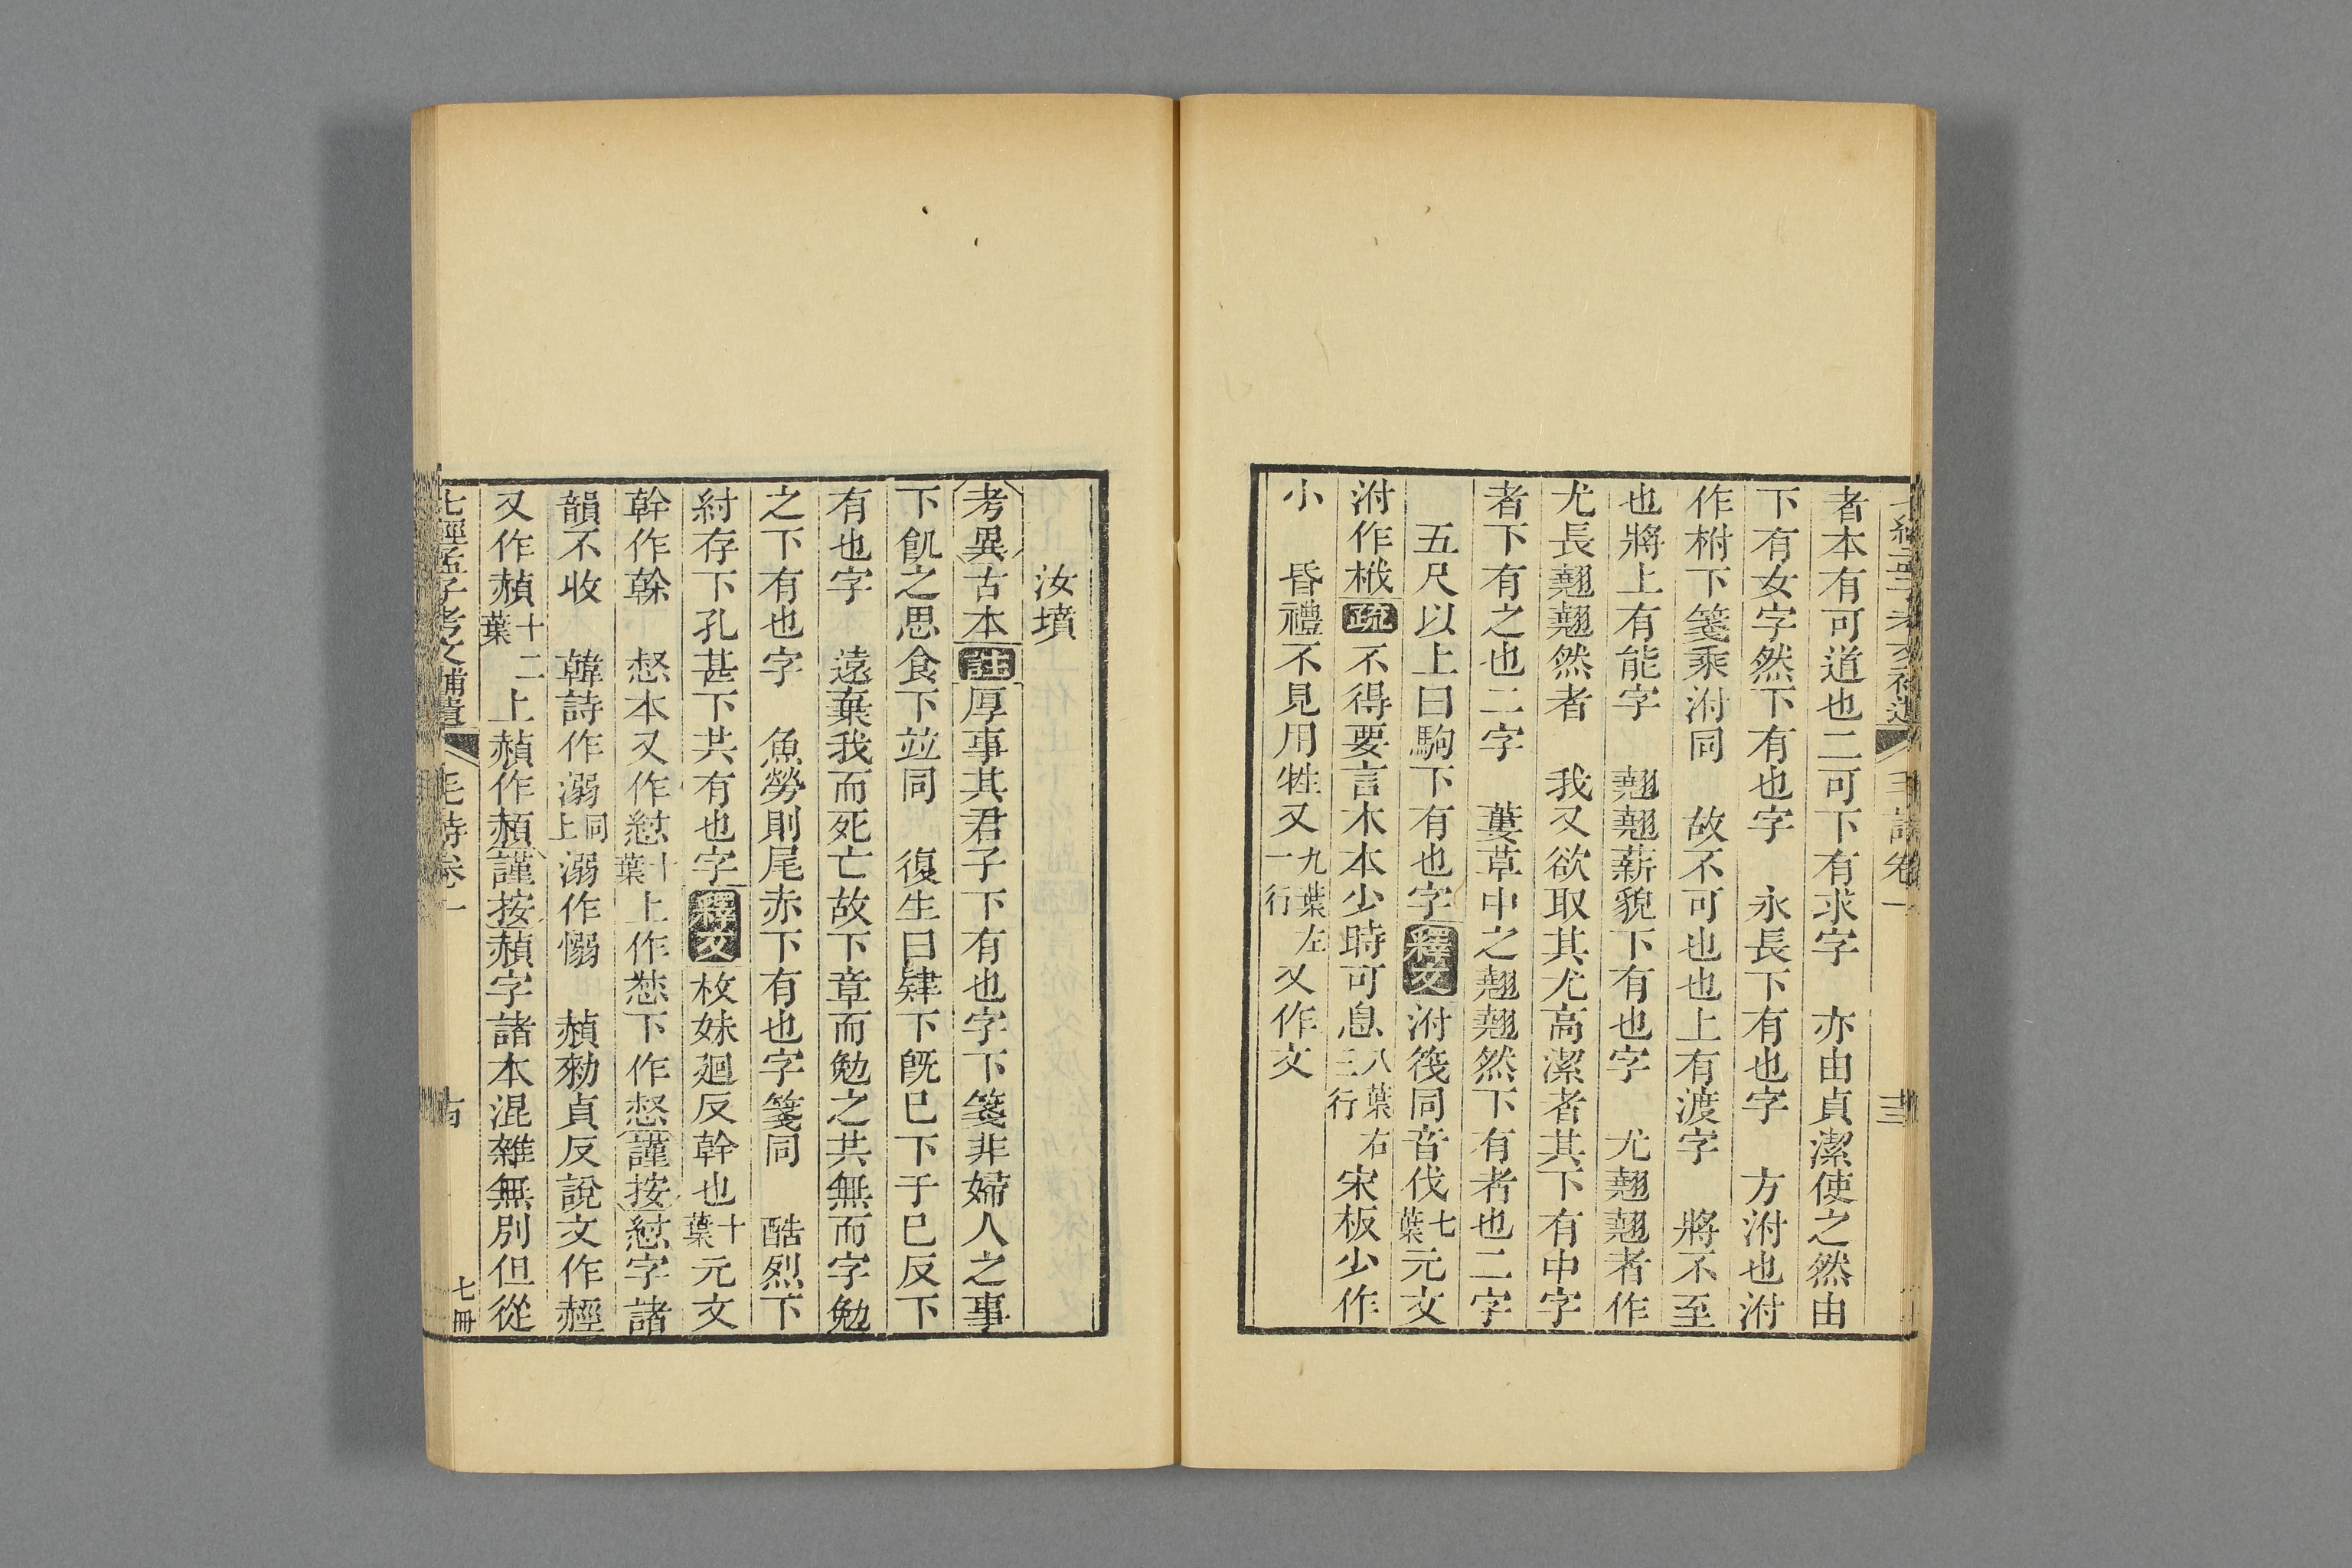 者本有可道也二可下有求字　亦由貞潔使之然由
下有女字然下有也字　永長下有也字　方泭也泭
作柎下箋乘泭同　故不可也也上有渡字　將不至
也將上有能字　翹翹薪貌下有也字　尤翹翹者作
尤長翹翹然者　我又欲取其尤高潔者其下有中字
者下有之也二字　蔞草中之翹翹然下有者也二字
五尺以上曰駒下有也字釋文泭筏同音伐七葉元文
泭作栰疏不得要言木本少時可息八葉右三行宋板少作
小　昏禮不見用牲又九葉左一行又作文
汝墳
考異古本註厚事其君子下有也字下箋非婦人之事
下飢之思食下並同　復生曰肄下旣已下于已反下
有也字　遠棄我而死亡故下章而勉之共無而字勉
之下有也字　魚勞則尾赤下有也字箋同　酷烈下
紂存下孔甚下共有也字釋文枚妹廻反幹也十葉元文
幹作榦　惄本又作愵十葉上作愻下作惄謹按愵字諸
韻不收　韓詩作溺同上溺作愵　赬勑貞反說文作經
又作赬十二葉上赬作赪謹按赬字諸本混雜無別但從
七經孟子考文補遺　毛詩卷一　七冊